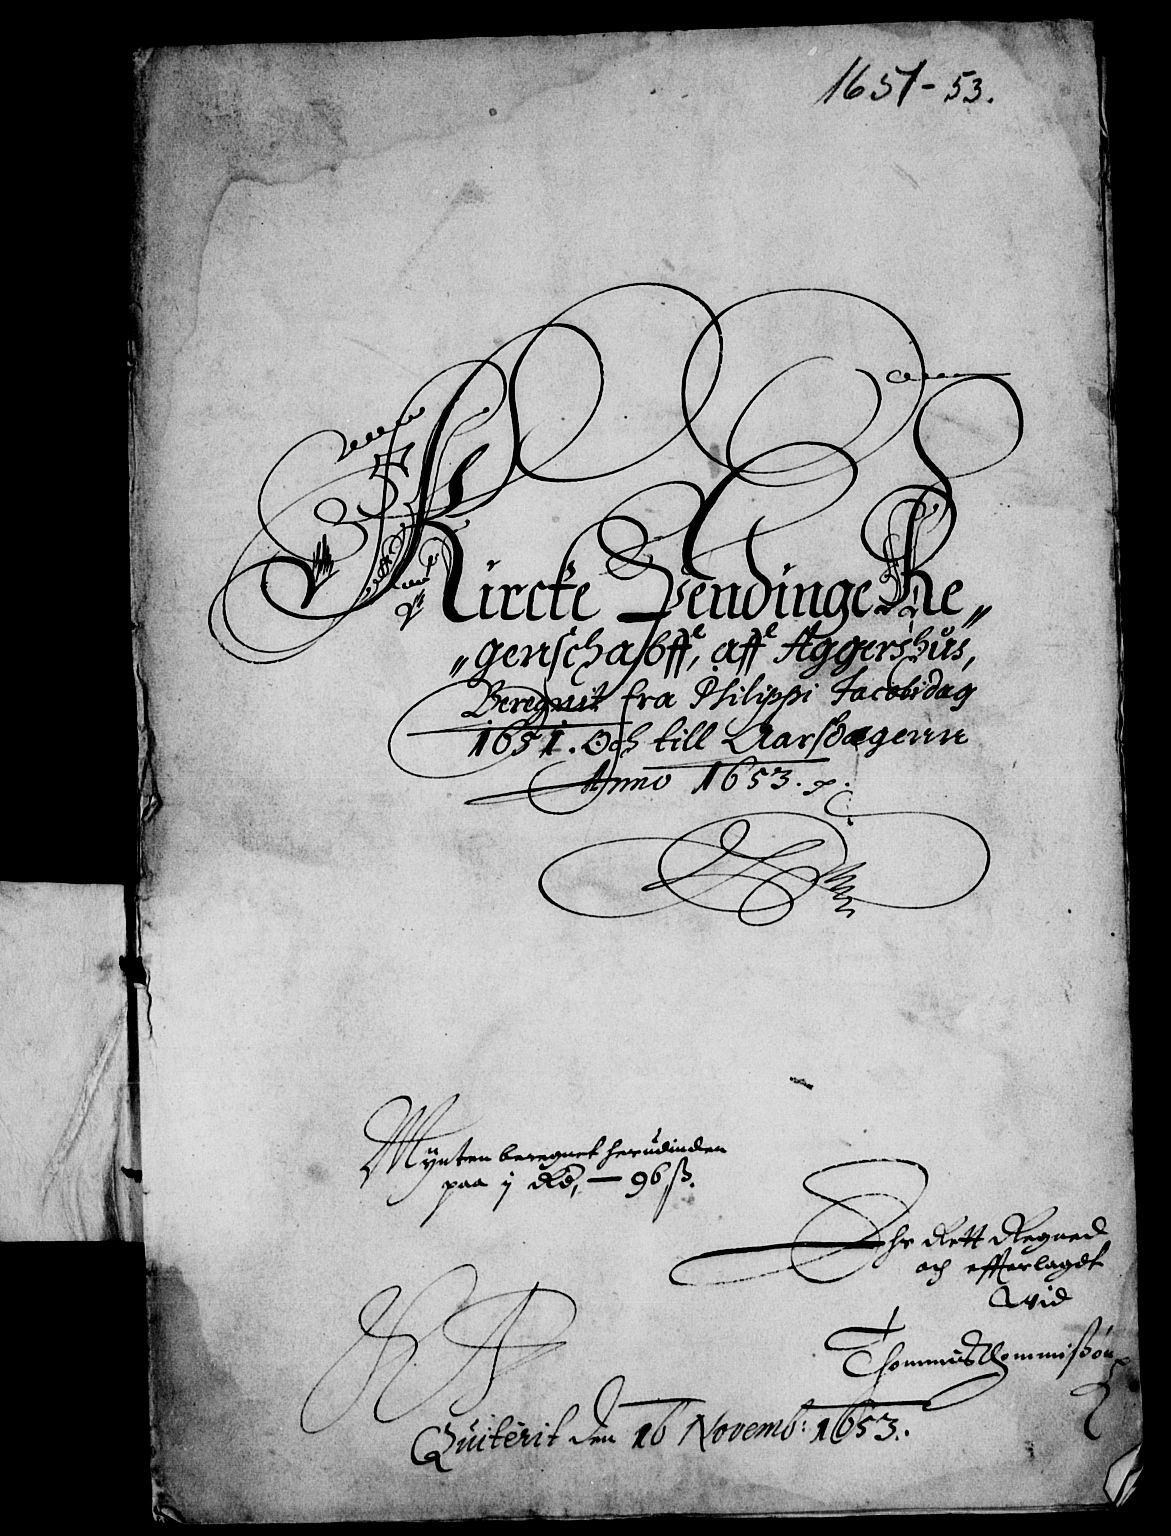 1651-53.
Kircke Pendinge Re„
„genschabff, aff Aggershus,
Beregnit fra Philippi Jacobi dag
1651. Och till Aarsdagenn
Anno 1653.
Mynten beregnet herudinden
paa j Rd, — 96 ß.
Ehr Rett Regned
och efterlagdt
Wid
Thommis Thommißøn
Quiterit den 16 Novemb: 1653.